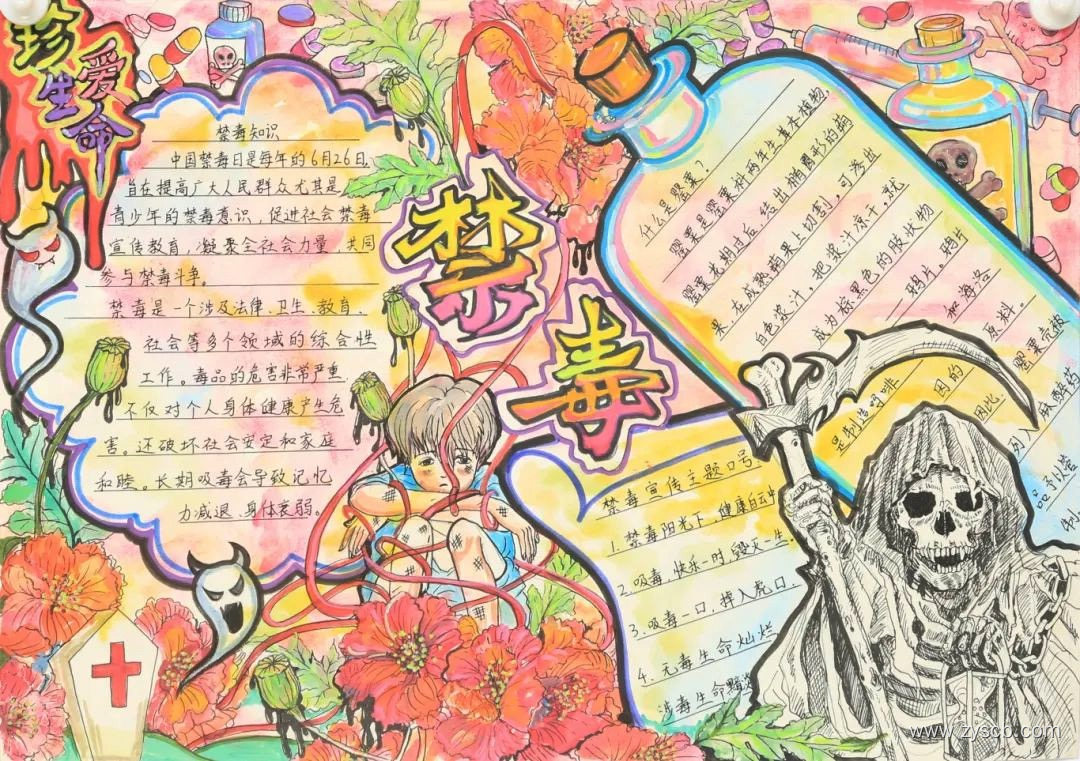 珍爱生命
禁毒
禁毒知识
中国禁毒日是每年的6月26日,
旨在提高广大人民群众尤其是
青少年的禁毒意识,促进社会禁毒
宣传教育,凝聚全社会力量,共同
参与禁毒斗争。
禁毒是一个涉及法律、卫生、教育、
社会等多个领域的综合性
工作。毒品的危害非常严重
不仅对个人身体健康产生危
害。还破坏社会安定和家庭
和睦。长期吸毒会导致记忆
力减退、身体衰弱。
什么是罂粟?
罂粟是罂粟科两年生草本植物,
罂粟花期过后,结出椭圆形的蒴
果,在成熟蒴果上切割,可渗出
白色浆汁。把浆汁凉干,就
成为棕黑色的胶状物
鸦片。鸦片
是制造吗啡和海洛
因的原料。
因此,罂粟壳被
列麻醉药
品予以管
制.
禁毒宣传主题口号.
1.禁毒阳光下,健康白云中
2.吸毒,快乐一时,毁灭一生.
3.吸毒一口,掉入虎口.
4.无毒生命灿烂
涉毒生命黯淡
www.zyscb.com